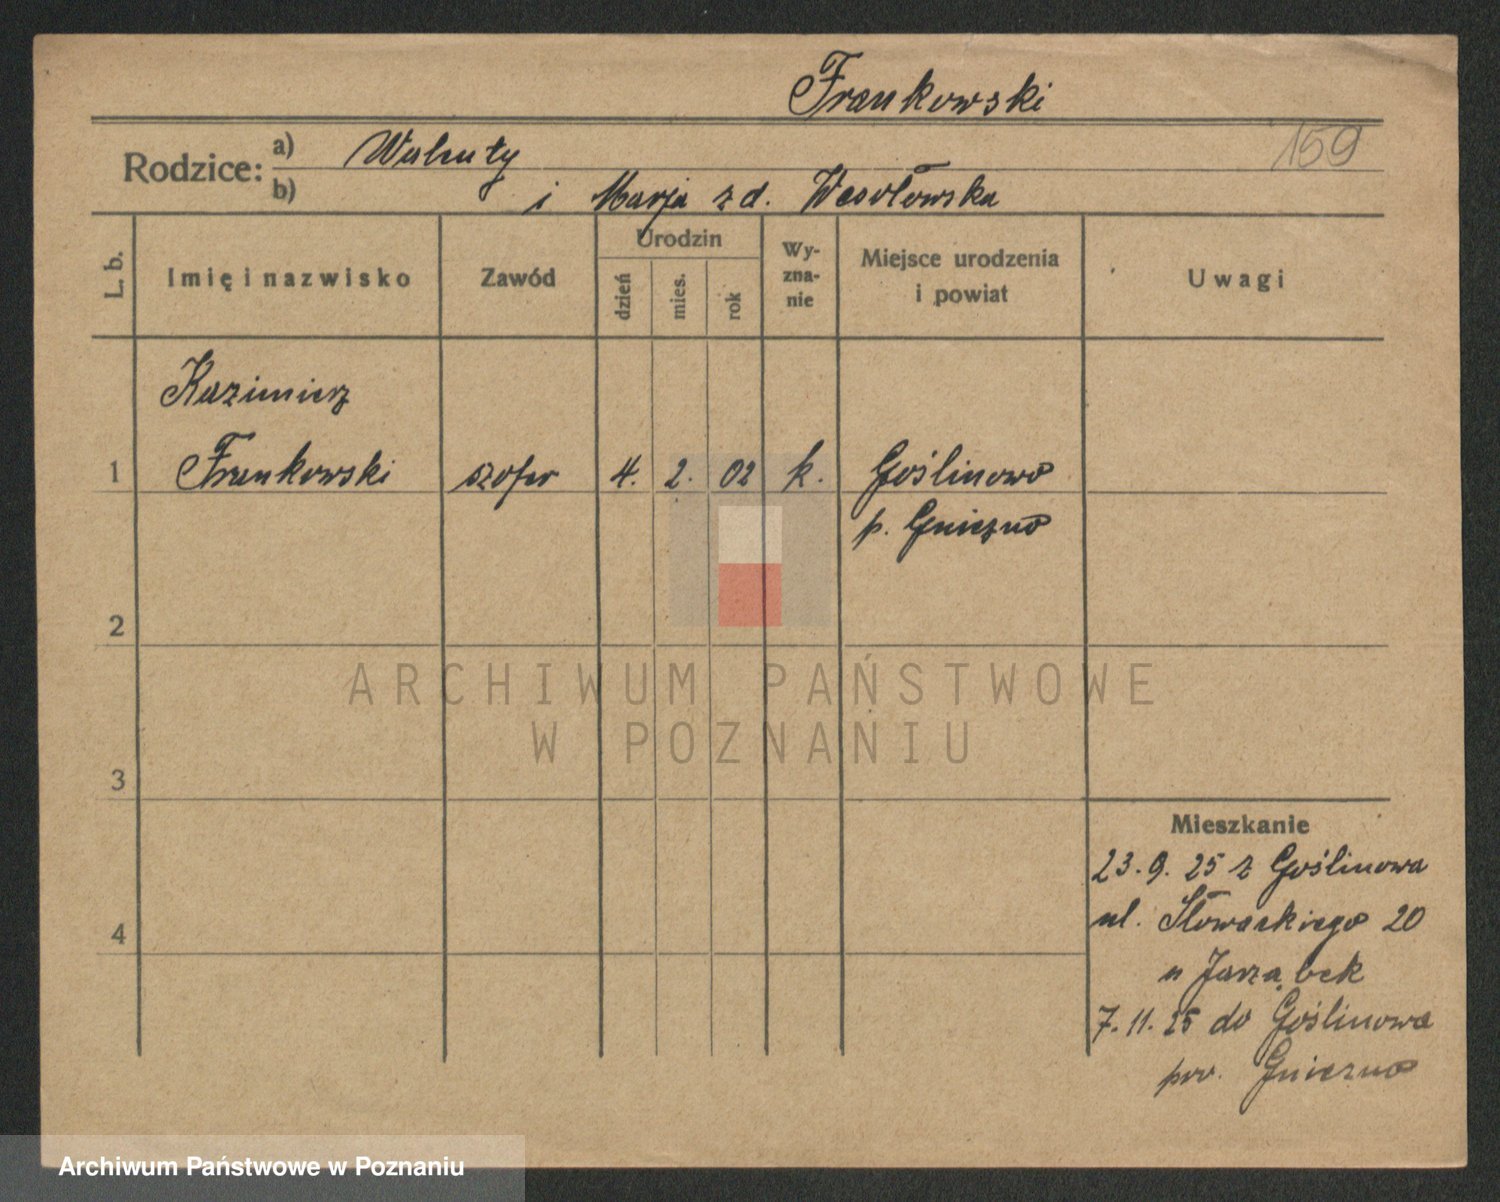 Frankowski
159
Rodzice: a) Walenty
b) i Marja z d. Wesołowska
L. b.
Imię i nazwisko
Zawód
Urodzin
dzień
mies.
rok
Wy-
zna-
nie
Miejsce urodzenia
i powiat
Uwagi
Kazimierz
1 Frankowski szofer 4. 2. 02 k. Goślinowo
p. Gniezno
2
3
4
ARCHIWUM PAŃSTWOWE
W POZNANIU
Mieszkanie
23.9.25 z Goślinowa
ul. Słowackiego 20
u Jarząbek
7.11.25 do Goślinowa
pow. Gniezno
Archiwum Państwowe w Poznaniu